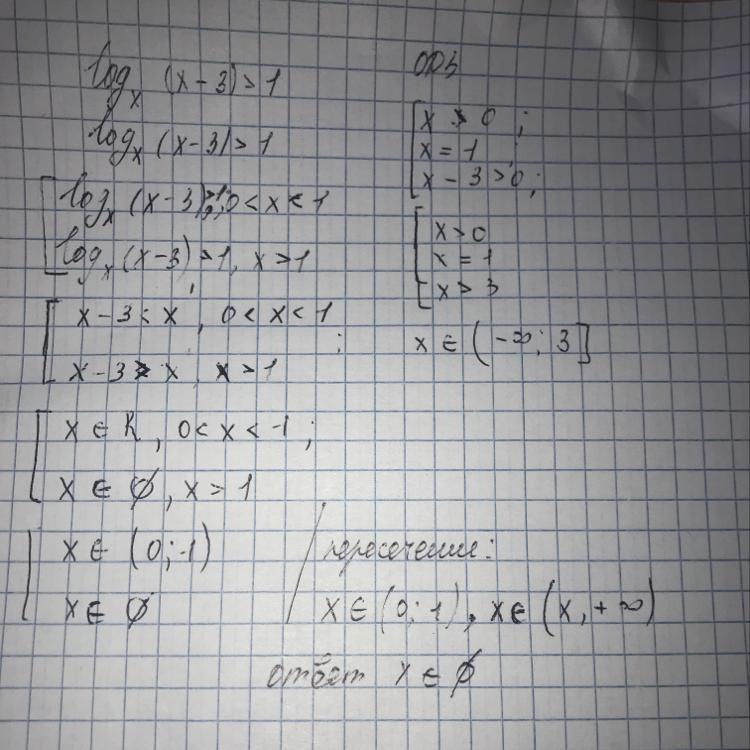 log_x (x-3)>1
log_x (x-3)>1
log_x (x-3)>1; 0<x<1
log_x (x-3)>1, x>1
x-3<x, 0<x<1;
x-3>x, x>1
x∈R, 0<x<-1;
x∈∅, x>1
x∈(0;-1)
x∈∅
ОДЗ
x>0;
x=1;
x-3>0;
x>0
x=1
x>3
x∈(-∞; 3]
пересечение:
x∈(0;1), x∈(x,+∞)
ответ x∈∅